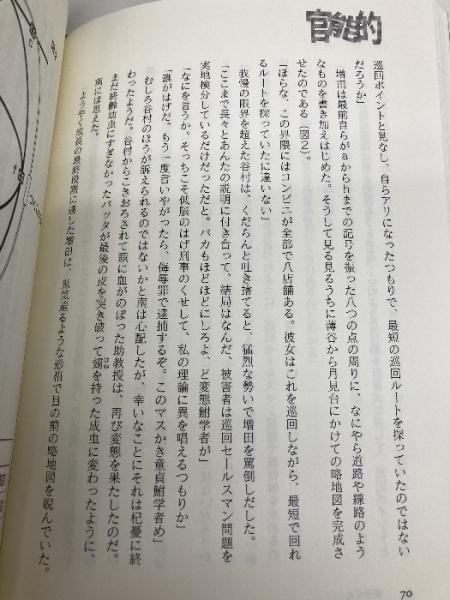 官能的
巡回ポイントと見なし、自らアリになったつもりで、最短の巡回ルートを探っていたのではない
だろうか」
増田は最前自らがaからhまでの記号を振った八つの点の周りに、なにやら道路や線路のよう
なものを書き加えはじめた。そうして見る見るうちに薄谷から月見台にかけての略地図を完成さ
せたのである（図2）。
「ほらな、この界隈にはコンビニが全部で八店舗ある。彼女はこれを巡回しながら、最短で回れ
るルートを探っていたに違いない」
我慢の限界を超えた谷村は、くだらんと吐き捨てると、猛烈な勢いで増田を罵倒しだした。
「ここまで長々とあんたの説明に付き合って、結局はなんだ、被害者は巡回セールスマン問題を
実地検分しているだけだっただと。バカもほどほどにしろよ、ど変態鮒学者が」
「なにを言うか。そっちこそ低脳のはげ刑事のくせして、私の理論に異を唱えるつもりか」
「誰がはげだ。もう一度言いやがったら、侮辱罪で逮捕するぞ。このマスかき童貞鮒学者め」
むしろ谷村のほうが訴えられるのではないかと南は心配したが、幸いなことにそれは杞憂に終
わったようだ。谷村からこきおろされて頭に血がのぼった助教授は、再び変態を果たしたのだ。
まだ終齢幼虫にすぎなかったバッタが最後の皮を突き破って翅を持った成虫に変わったように、
はね
南には思えた。
ようやく成長の最終段階に達した増田は、鬼気迫るような形相で目の前の略地図を睨んでいた。
70